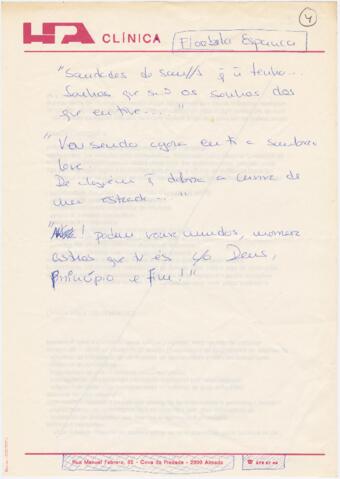 4
HPA CLÍNICA
Florbela Espanca
"Saudades de saudades q ñ tenho...
Sonhos que são os sonhos dos
que eu tive..."
"Vou sendo agora em ti a sombra
leve
De alguém q dobrou a curva de
uma estrada..."
"Ah! podem voar mundos, morrer
astros que tu és c/o Deus,
princípio e fim!"
Rua Manuel Febrero, 82 - Cova da Piedade - 2800 Almada